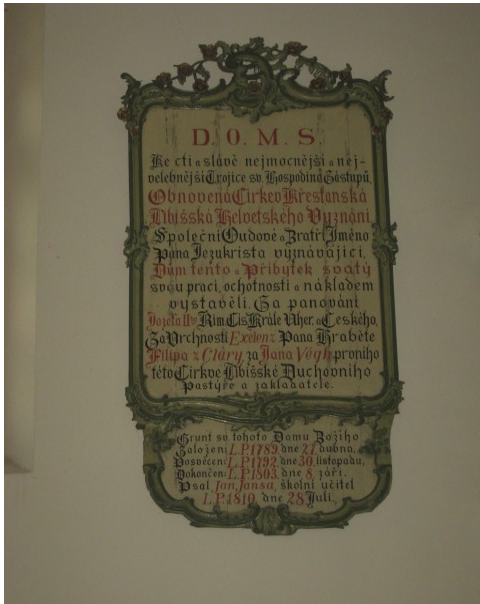 D. O. M. S.
Ke cti a slávě nejmocnější a nej-
velebnější Trojice sv. Hospodina Zástupů,
Obnovená Cirkev Křesťanská
Libišská Helvetského Vyznání
Společní Oudové a Bratří Jméno
Pána Jezukrista vyznávající,
Dům tento a Příbytek svatý
svou prací, ochotností a nákladem
vystavěli. Za panování
Jozefa II. Řím. Cís. Krále Uher. a Českého,
Za Vrchnosti Exelenz Pana Hraběte
Filipa z Cláry za Jana Végh prvního
této Církve Libišské Duchovního
Pastýře a zakladatele.
Grunt sv tohoto Domu Božího
Založen: L.P.1789. dne 27 dubna,
Posvěcen: L.P.1792. dne 30. listopadu,
Dokončen: L.P.1803. dne 8. září.
Psal Jan Jansa, školní učitel
L.P.1810. dne 28 Juli.